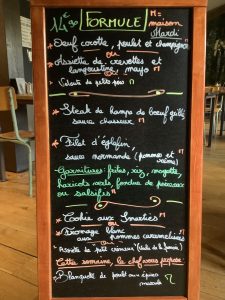 14€90 FORMULE M= maison
Mardi
Oeuf cocotte, poulet et champignons M
ou
Assiette de crevettes et
langoustine, mayo M
ou
Velouté de petits pois M
Steak de hampe de boeuf grillé,
sauce chasseur M
Filet d'églefin,
sauce normande (pommes et
crème) M
Garnitures: frites, riz, risotto,
haricots verts, fondue de poireaux
ou salsifis
Cookie aux Smarties M
ou
Fromage blanc
aux pommes caramélisées M
ou
Assiette de petit crémeux (lait de la ferme)
Cette semaine, le chef vous propose
Blanquette de poulet aux épices
M